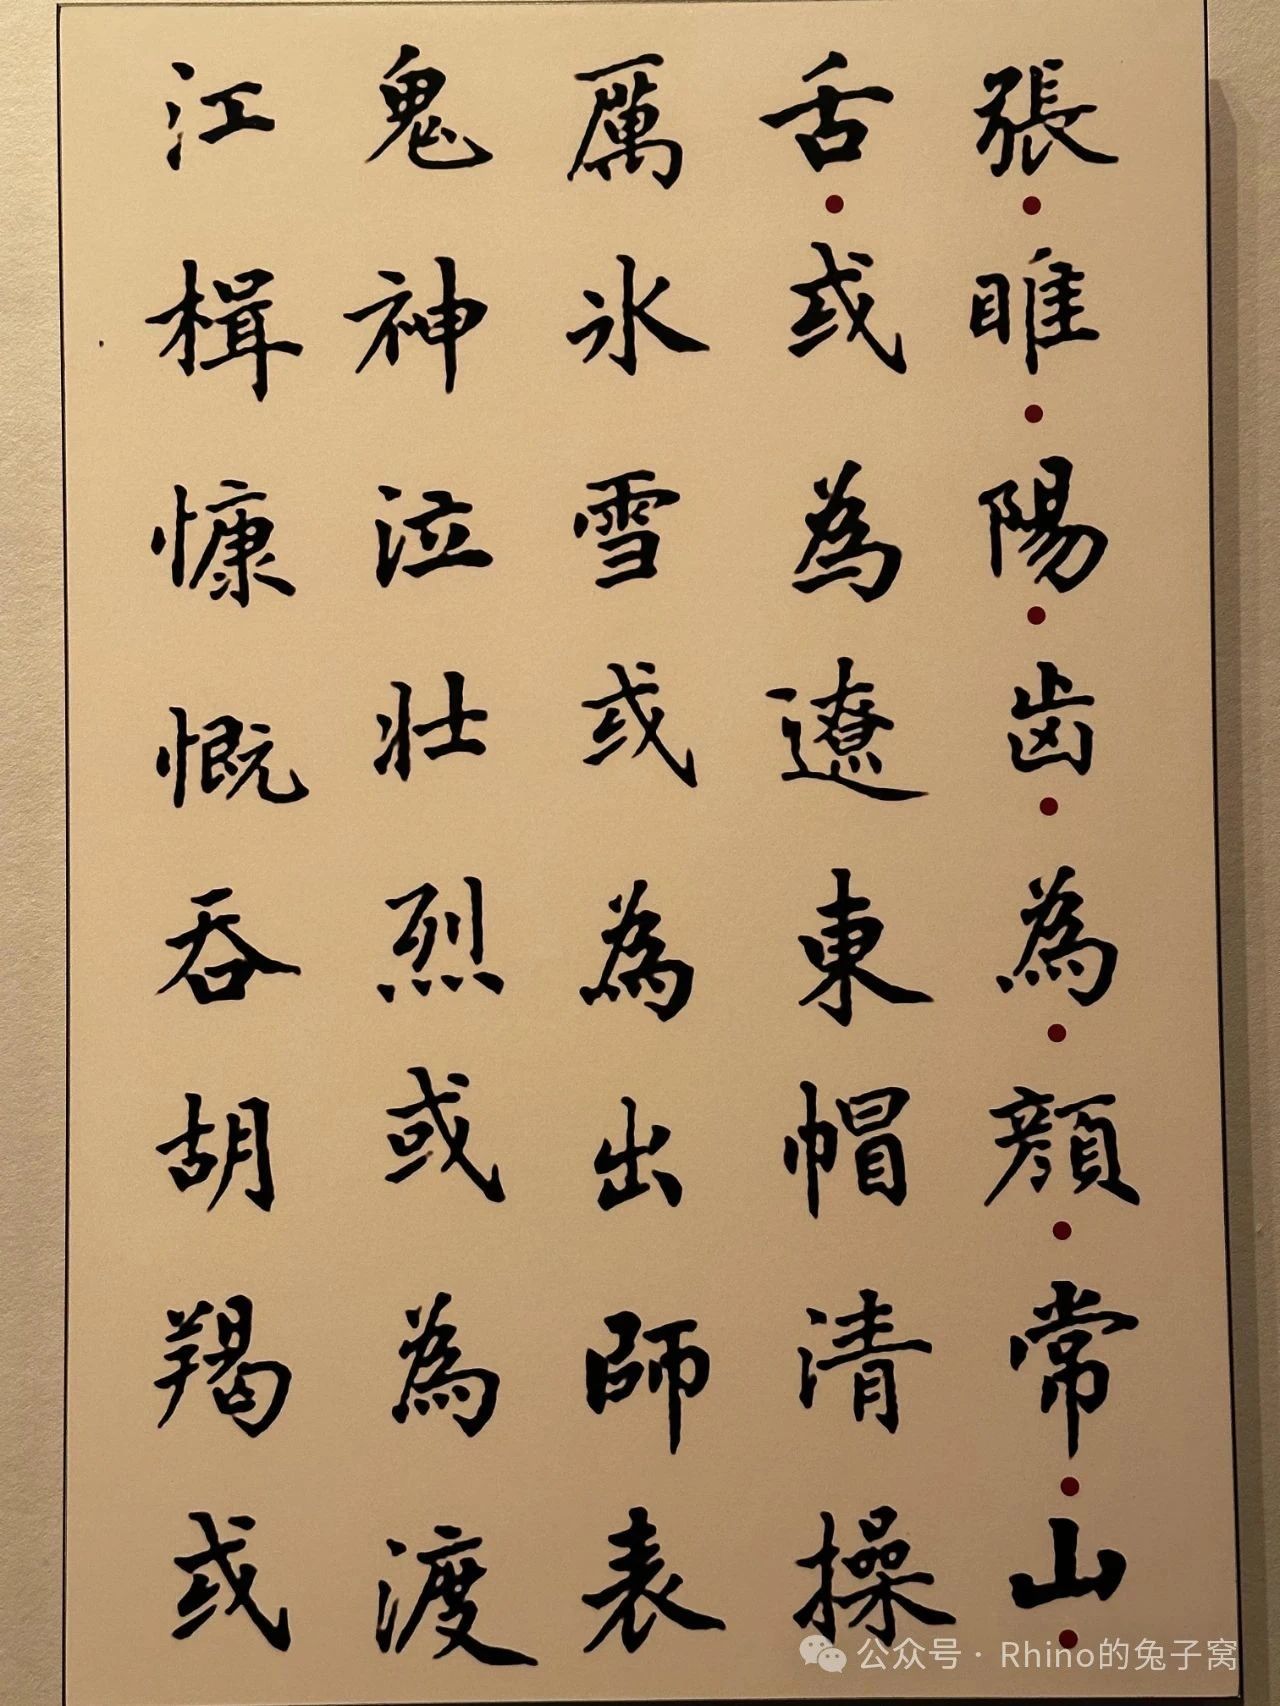 張睢陽齒為顔常山
舌或為遼東帽清操
厲氷雪或為出師表
鬼神泣壯烈或為渡
江楫慷慨吞胡羯或
公众号·Rhino的兔子窝